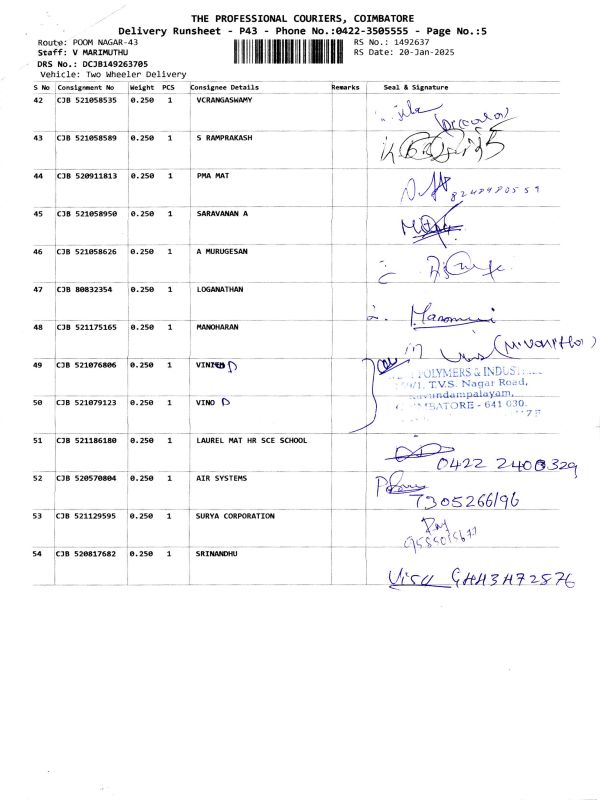 THE PROFESSIONAL COURIERS, COIMBATORE
Delivery Runsheet - P43 - Phone No.:0422-3505555 - Page No.:5
Route: POOM NAGAR-43 RS No.: 1492637
Staff: V MARIMUTHU RS Date: 20-Jan-2025
DRS No.: DCJB149263705
Vehicle: Two Wheeler Delivery
S No Consignment No Weight PCS Consignee Details Remarks Seal & Signature
42 CJB 521058535 0.250 1 VCRANGASWAMY
43 CJB 521058589 0.250 1 S RAMPRAKASH
44 CJB 520911813 0.250 1 PMA MAT
45 CJB 521058950 0.250 1 SARAVANAN A
46 CJB 521058626 0.250 1 A MURUGESAN
47 CJB 80832354 0.250 1 LOGANATHAN
48 CJB 521175165 0.250 1 MANOHARAN
49 CJB 521076806 0.250 1
POLYMERS & INDUS
T.V.S. Nagar Road,
50 CJB 521079123 0.250 1 VINO D
641 030.
51 CJB 521186180 0.250 1 LAUREL MAT HR SCE SCHOOL
0422 2400329
52 CJB 520570804 0.250 1 AIR SYSTEMS
7305266196
53 CJB 521129595 0.250 1 SURYA CORPORATION
54 CJB 520817682 0.250 1 SRINANDHU